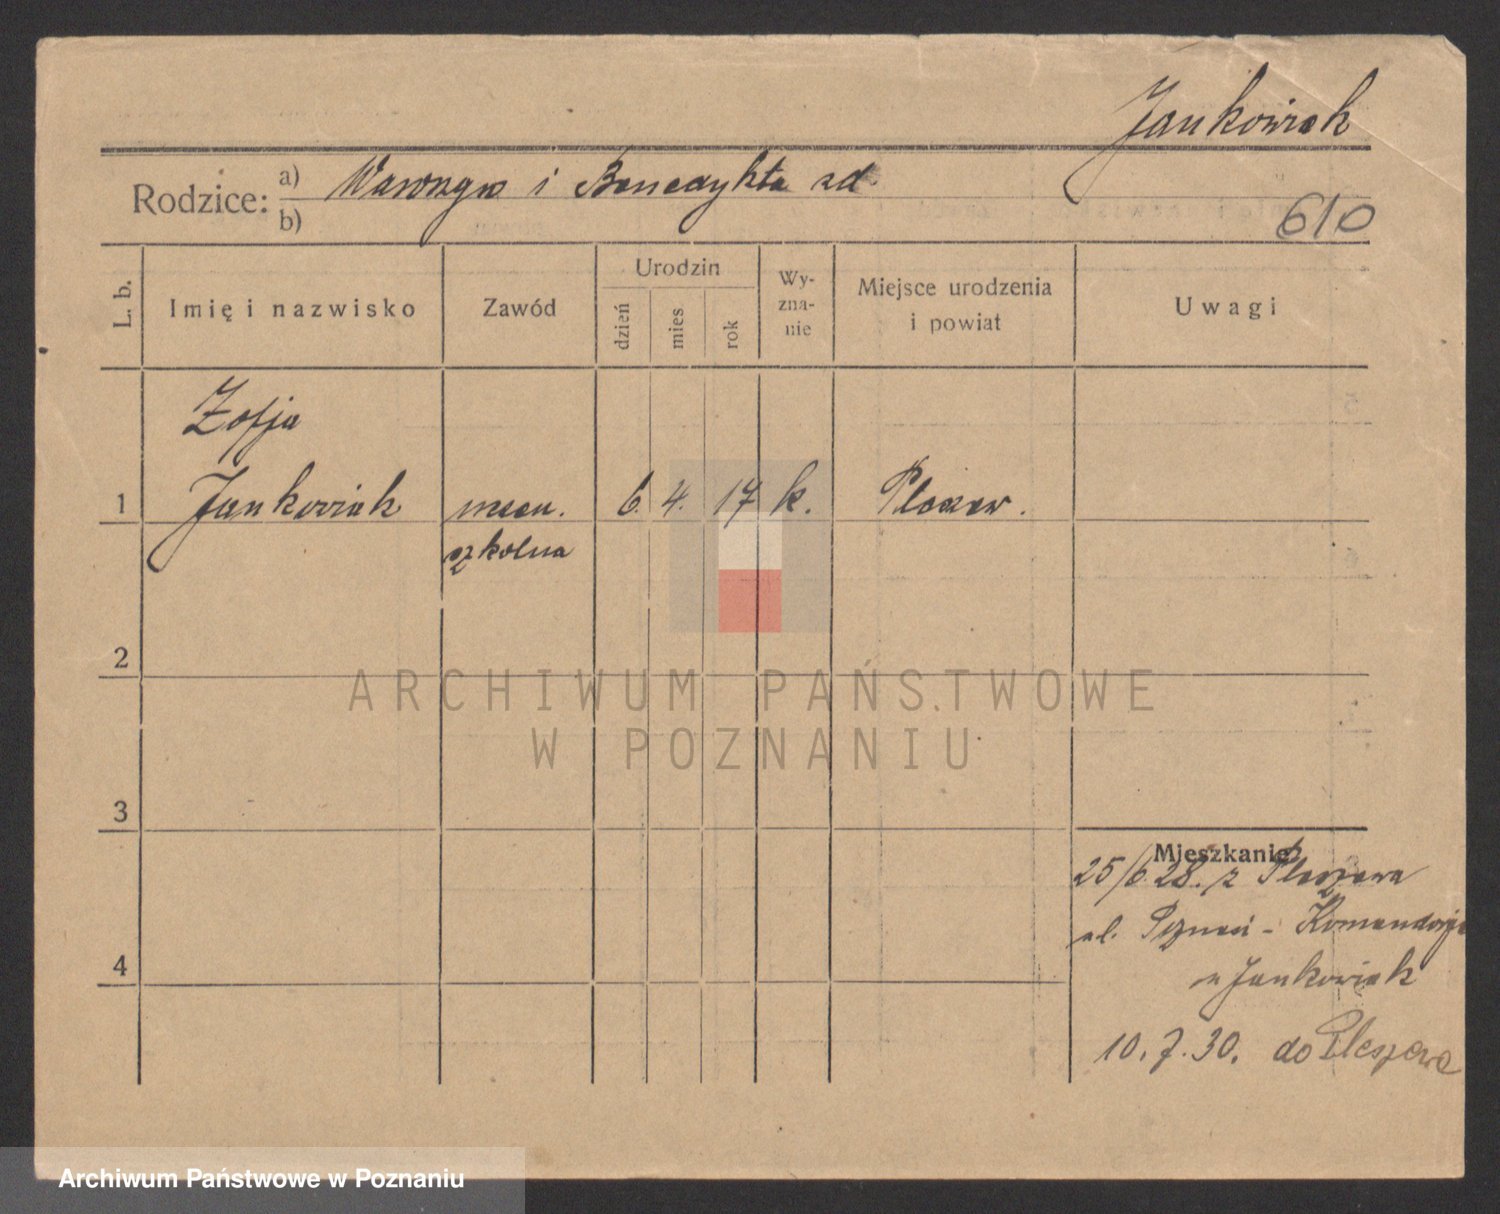 Jankowiak
Rodzice: a) Wawrzyn i Benedykta zd.
b)
610
L. b.
Imię i nazwisko
Zawód
Urodzin
dzień
mies
rok
Wy-
zna-
nie
Miejsce urodzenia
i powiat
Uwagi
Zofja
1 Jankowiak uczen. 6. 4. 17 k. Pleszew.
szkolna
2
ARCHIWUM PAŃSTWOWE
W POZNANIU
3
Mieszkanie
25/6 28. z Pleszewa
ul. Poznań - Komandorja
u Jankowiak
4
10.7.30. do Pleszewa
Archiwum Państwowe w Poznaniu